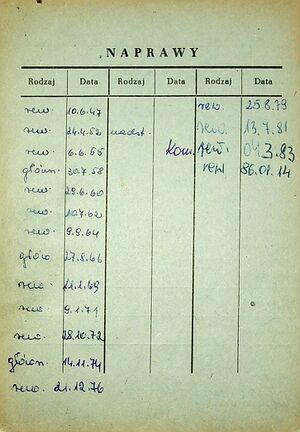 NAPRAWY
Rodzaj Data Rodzaj Data Rodzaj Data
rew. 10.6.47 rew. 25.8.79
rew. 24.4.52 rew. 13.7.81
rew. 6.6.55 Kom. rew. 04.3.83
główn. 30.7.58 rew 86.01.14
rew. 29.6.60
rew. 10.7.62
rew. 9.9.64
główn 27.8.66
rew. 11.2.69
rew. 9.1.71
rew. 28.10.72
główn. 14.11.74
rew. 21.12.76